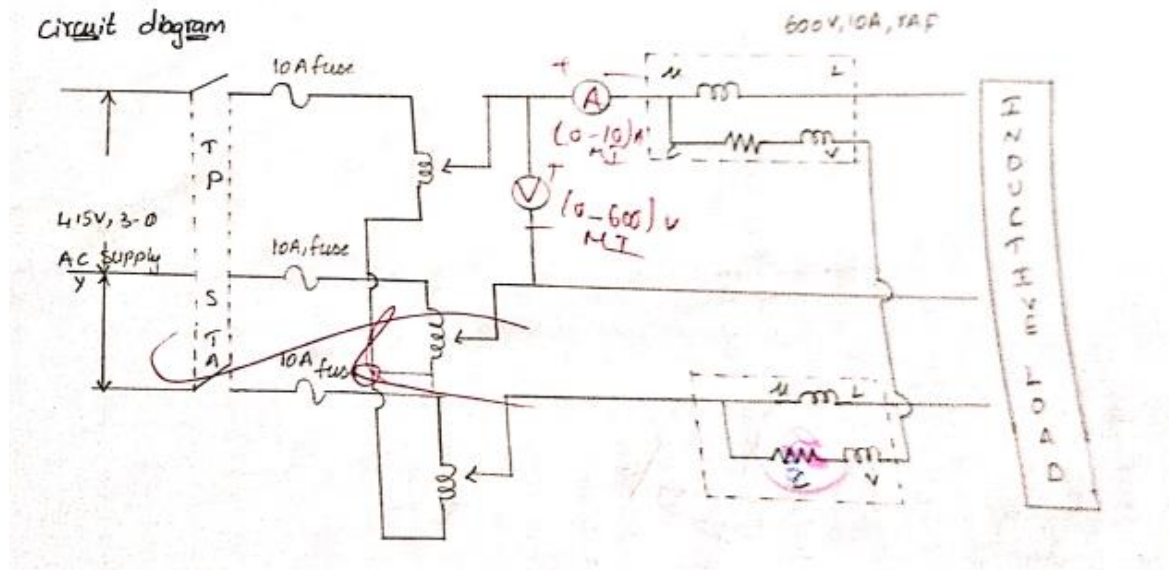 Circuit diagram
600V, 10A, UPF
10A fuse
+
A
M
L
(0-10)A
MI
C
V
T
P
S
T
+
V
(0-600)V
MI
415V, 3-Φ
AC supply
Y
10A, fuse
10A
fuse
M
L
C
V
LOAD